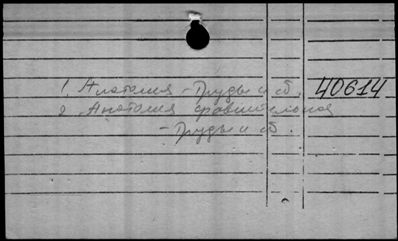 1. Анатомия - Труды и сб. 40614
2. Анатомия сравнительная
- Труды и сб.